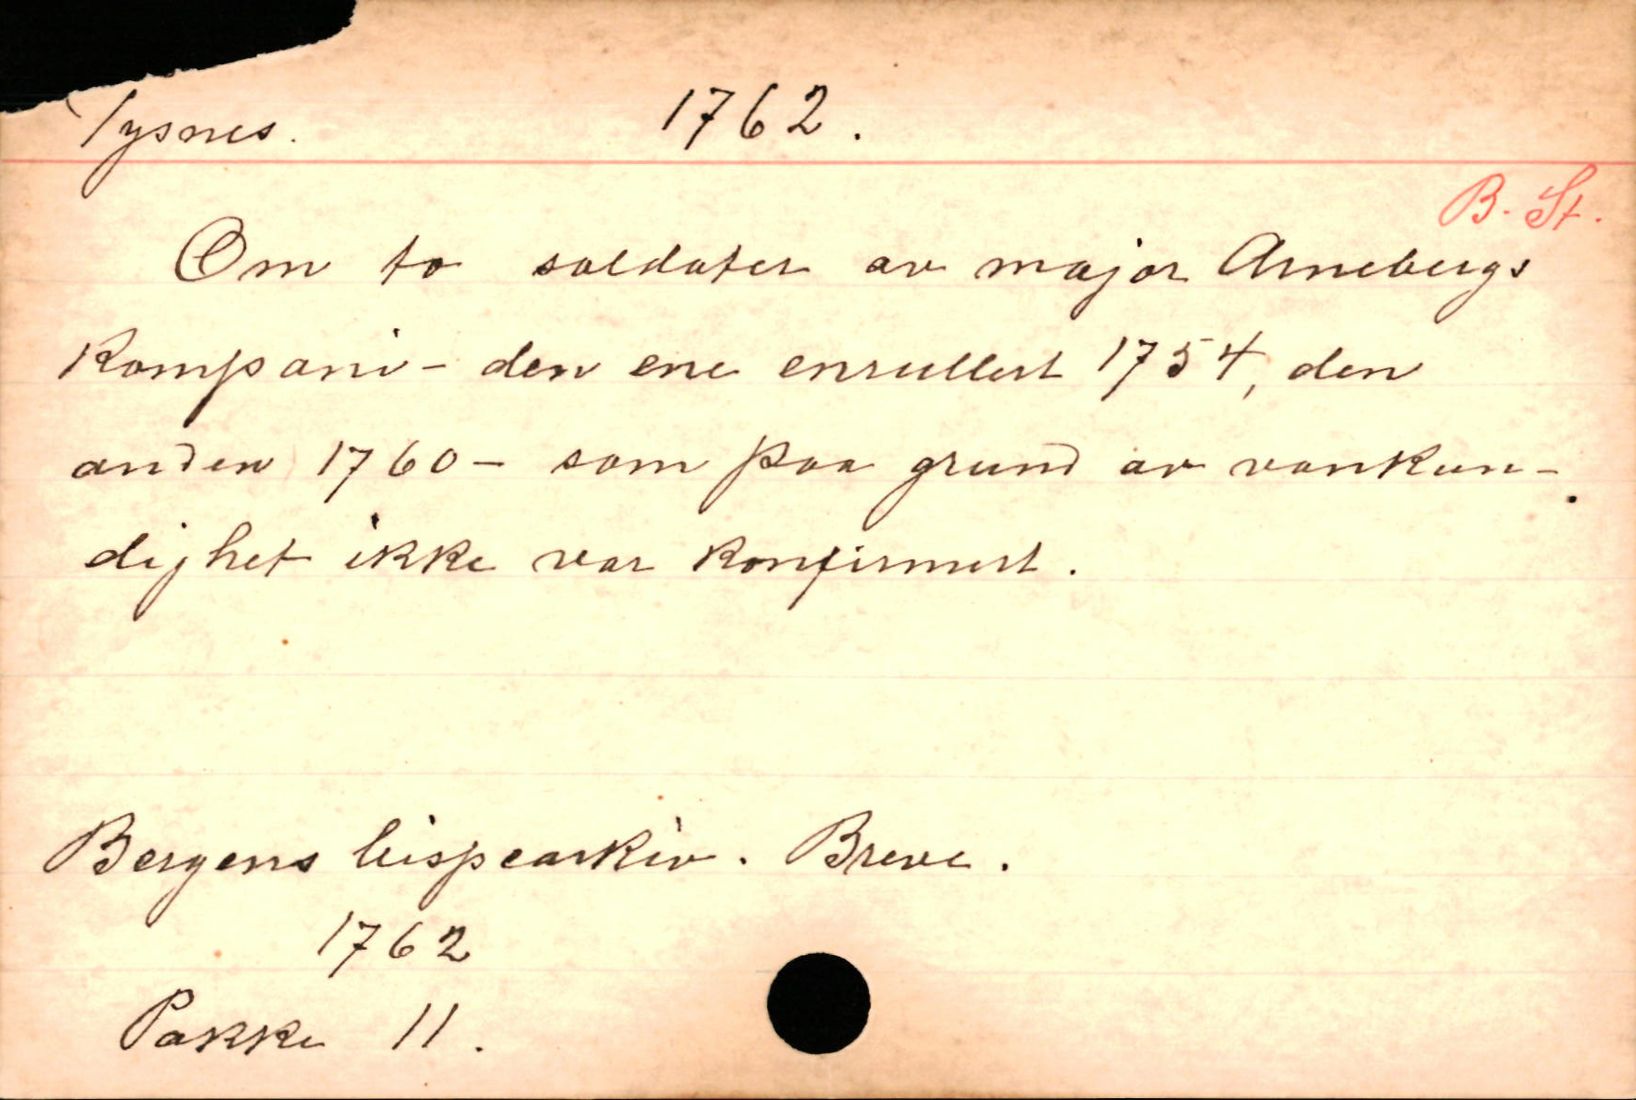 Tysnes. 1762.
B. St.
Om to soldater av major Arnebergs
Kompani - den ene enrullert 1754, den
anden 1760 - som paa grund av vankun-
dighet ikke var konfirmert.
Bergens bispearkiv. Breve.
1762
Pakke 11.